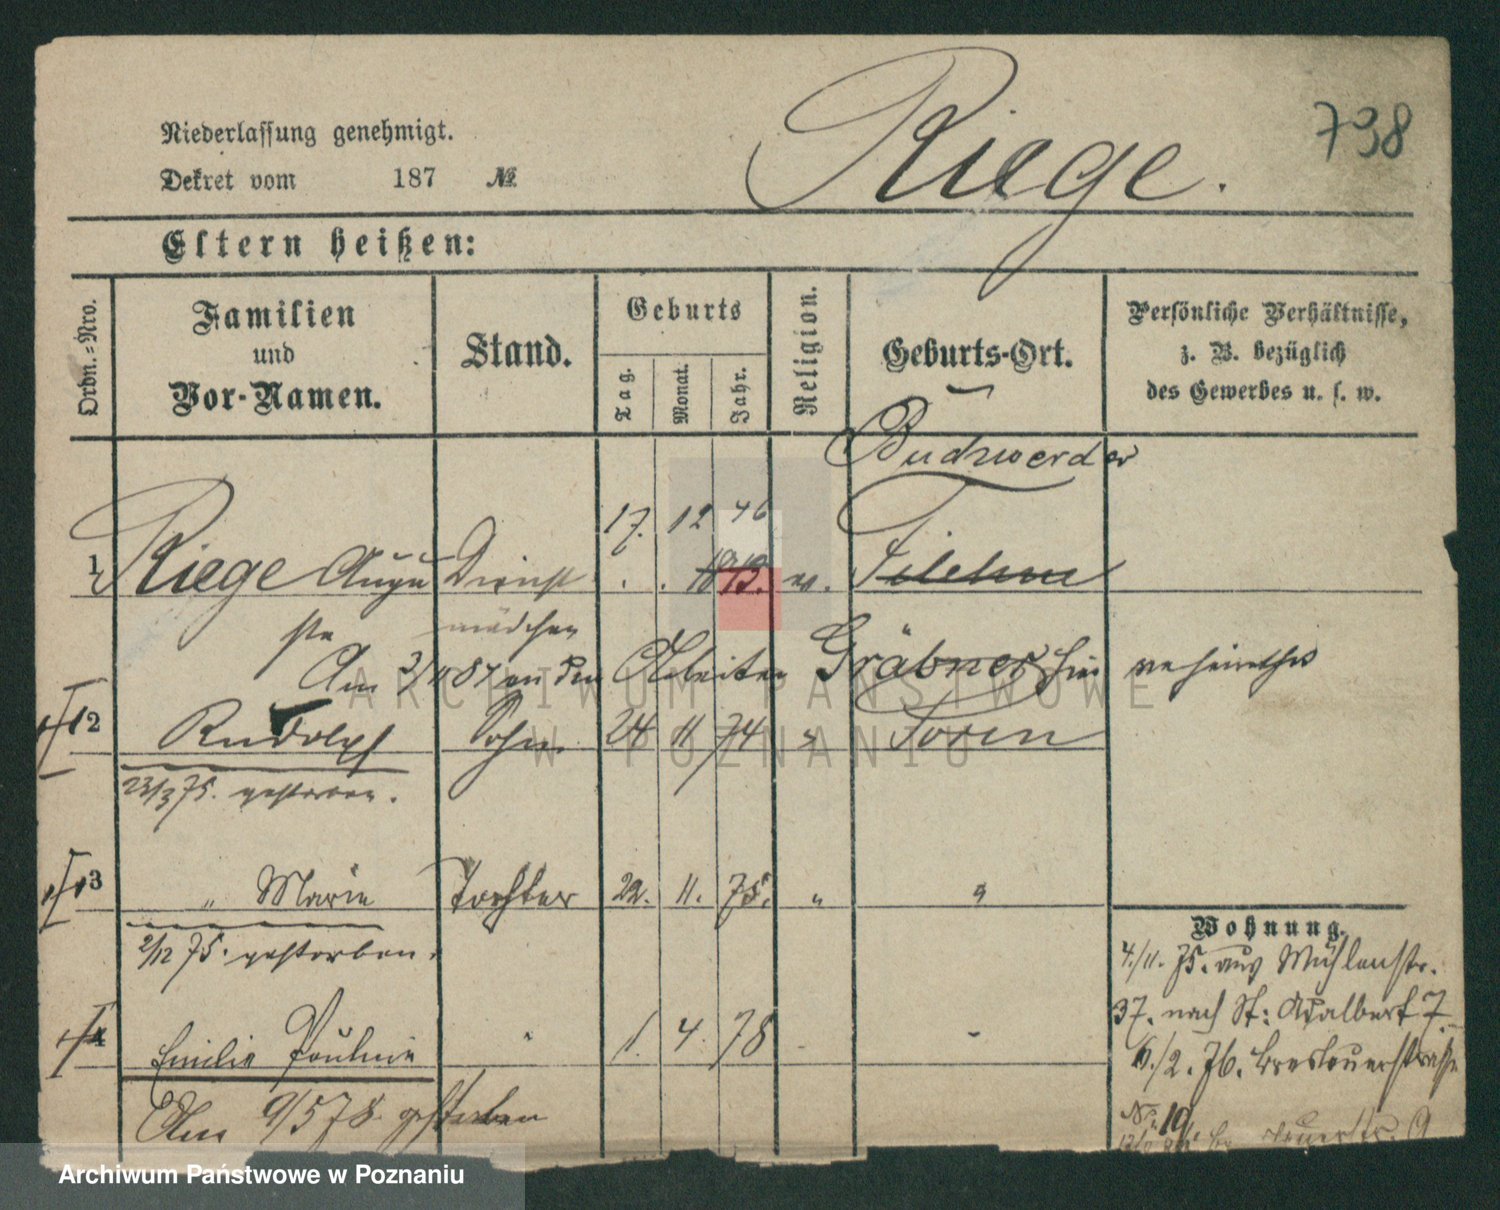 738
Riege.
Niederlassung genehmigt.
Dekret vom 187 №
Eltern heißen:
Ordn.-Nro.
Familien
und
Vor-Namen.
Stand.
Geburts
Tag.
Monat.
Jahr.
Religion.
Geburts-Ort.
Persönliche Verhältnisse,
z. B. bezüglich
des Gewerbes u. s. w.
Budzwerder
17. 12 46
1 Riege Augu Dienst
ste mädchen
Am an den Arbeiter Gräbner hier verheirathet
2 Rudolph Sohn. 24 11 74 "
23/3 75. gestorben.
3 " Marie Tochter 22. 11. 75. " "
2/12 75. gestorben.
4 Emilie Pauline " 1. 4. 78
Am 9/5 78 gestorben
Wohnung.
4./11. 75. aus Mühlenstr.
37. nach St: Adalbert 7.
/2. 76. Breslauerstraße
No. 19
ARCHIWUM PAŃSTWOWE
W POZNANIU
Archiwum Państwowe w Poznaniu